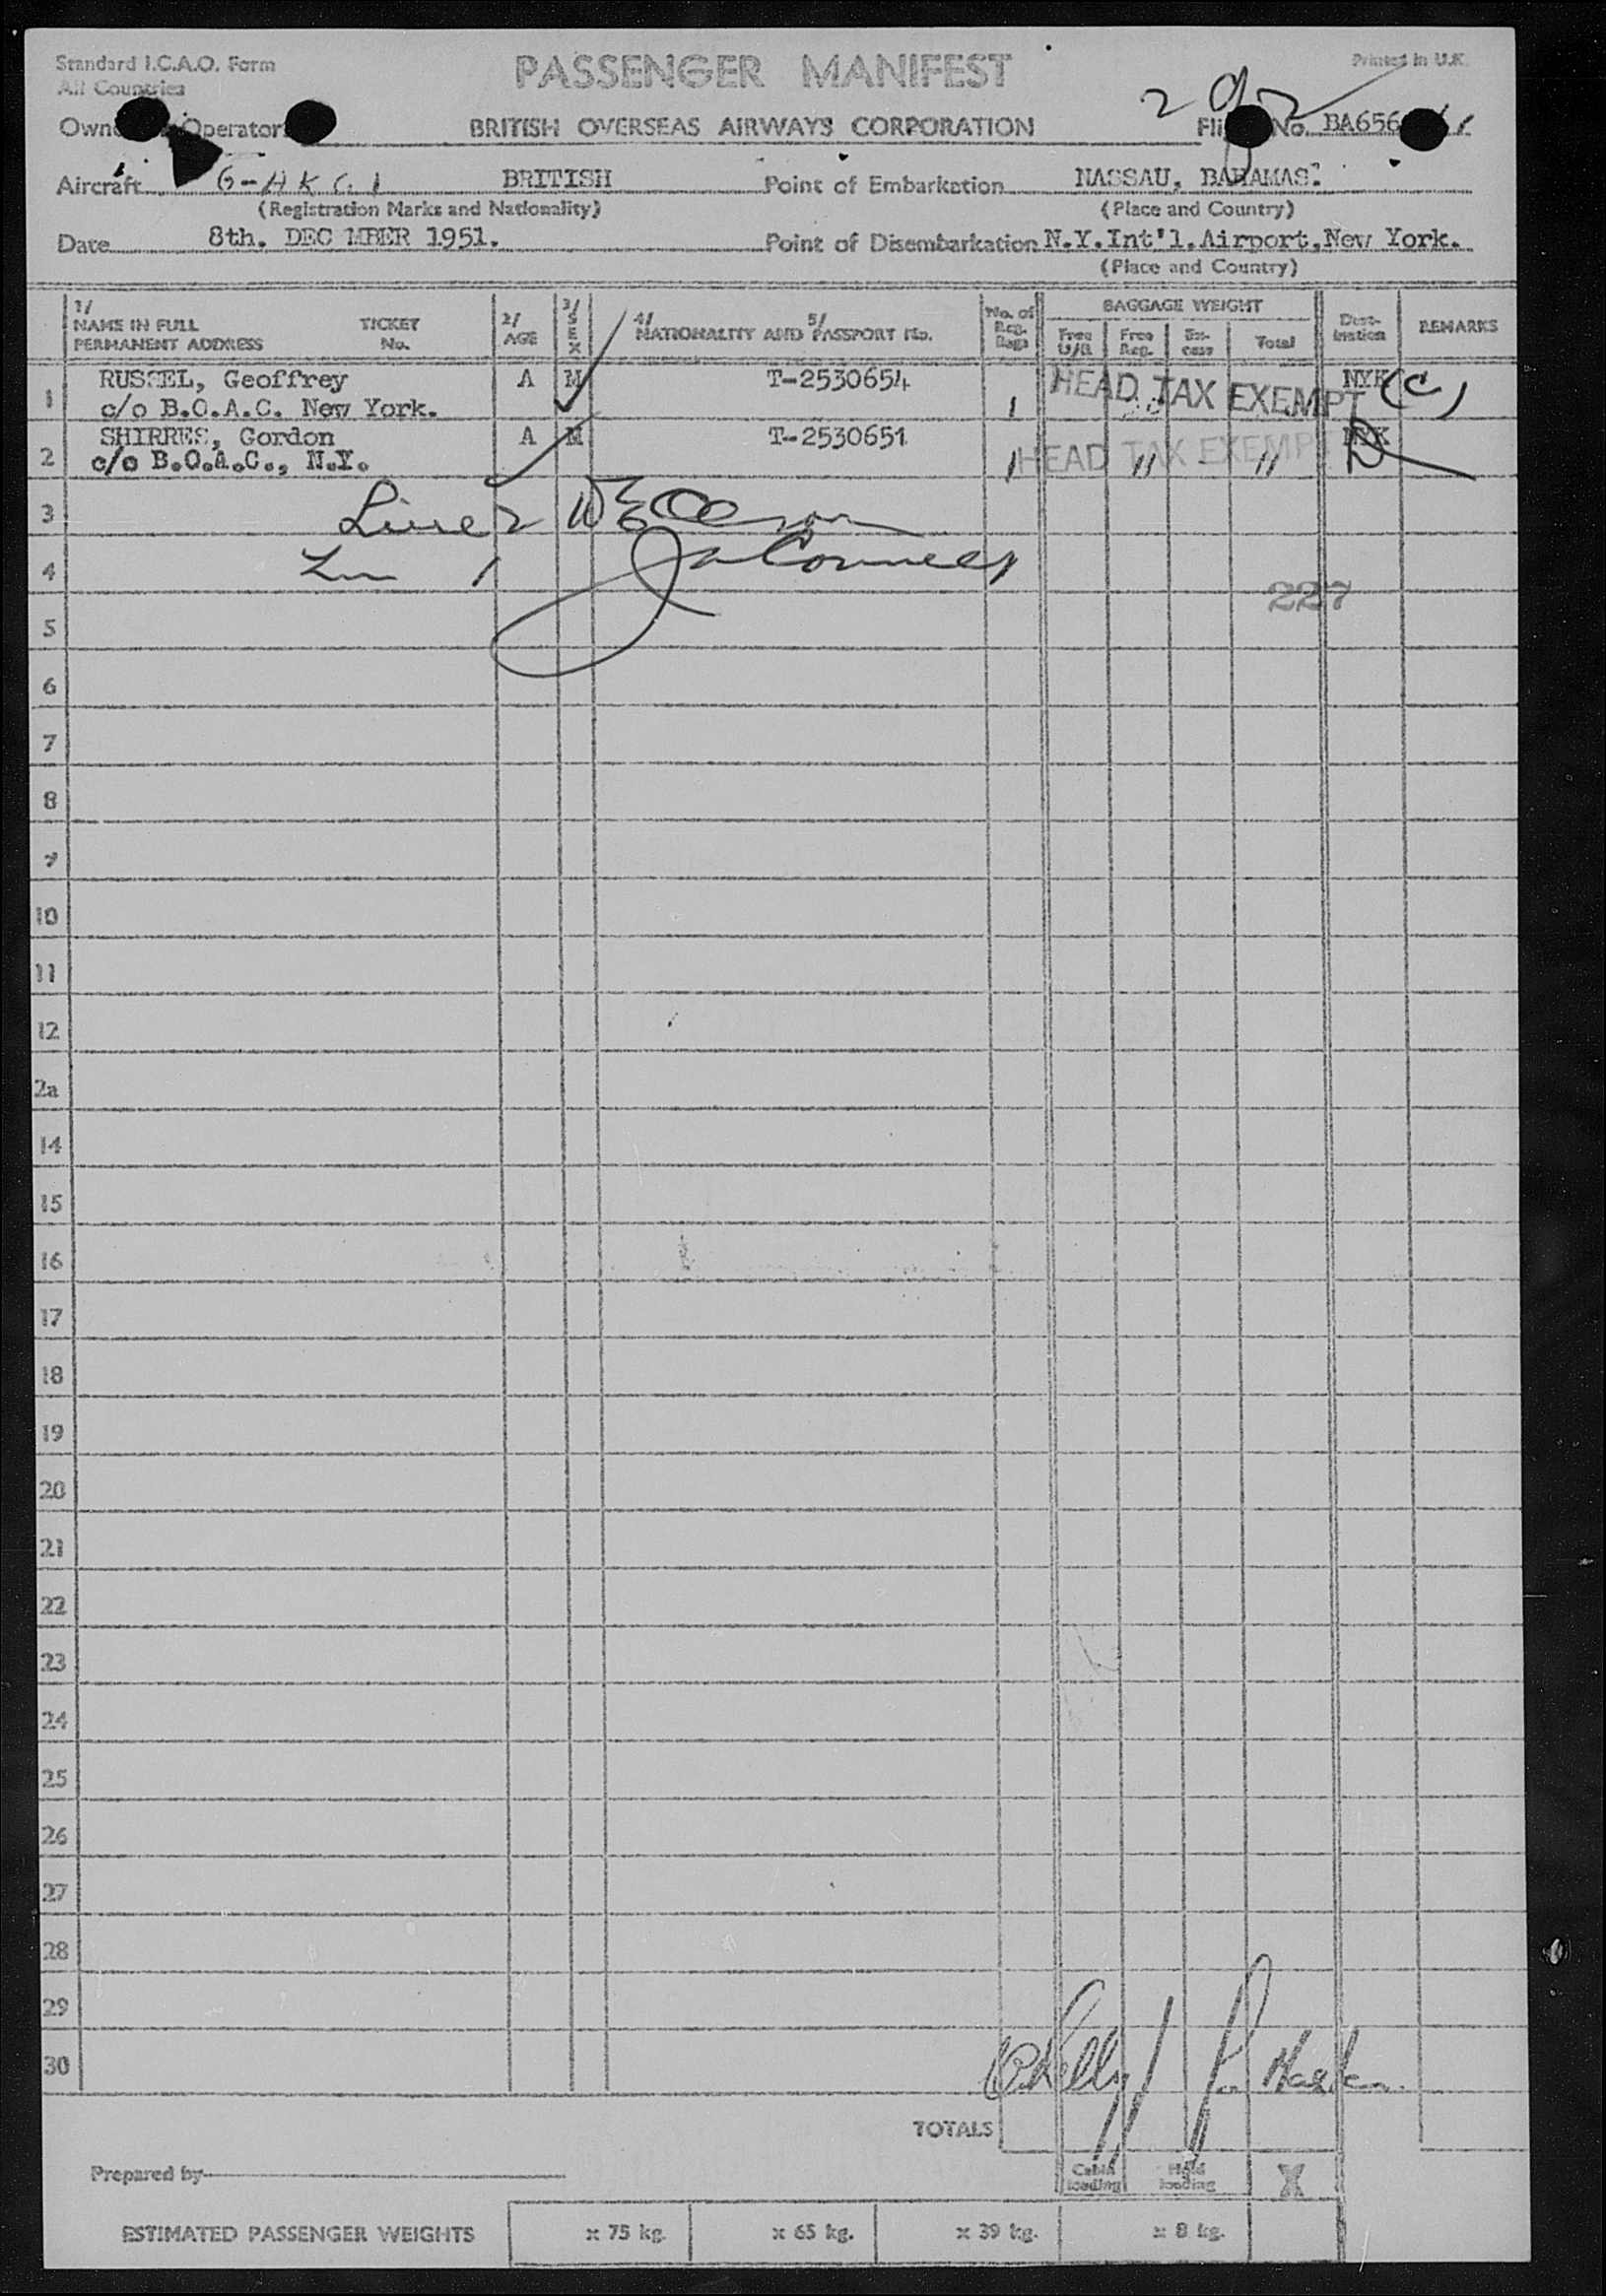 Standard I.C.A.O. Form
All Countries
PASSENGER MANIFEST
Printed in U.K.
292
Operator
BRITISH OVERSEAS AIRWAYS CORPORATION
No. BA656
Aircraft G-AKG1 BRITISH
Point of Embarkation NASSAU, BAHAMAS.
(Registration Marks and Nationality)
(Place and Country)
Date 8th. DEC MBER 1951.
Point of Disembarkation N.Y.Int'l.Airport,New York.
(Place and Country)
1/ NAME IN FULL TICKET
PERMANENT ADDRESS No.
2/ AGE
3/ SEX
4/ 5/
NATIONALITY AND PASSPORT No.
No. of Reg. Bags
BAGGAGE WEIGHT
Free U/R
Free Reg.
Ex-cess
Total
Dest-ination
REMARKS
1 RUSSEL, Geoffrey A M T-2530654 1 HEAD TAX EXEMPT NYK (C)
c/o B.O.A.C. New York.
2 SHIRRES, Gordon A M T-2530651 1 HEAD TAX EXEMPT NYK
c/o B.O.A.C., N.Y.
3 Line 2
4 Lin 1
227
5
6
7
8
9
10
11
12
2a
14
15
16
17
18
19
20
21
22
23
24
25
26
27
28
29
30
TOTALS
Prepared by
Cabin loading
Hold loading
X
ESTIMATED PASSENGER WEIGHTS x 75 kg. x 65 kg. x 39 kg. x 8 kg.